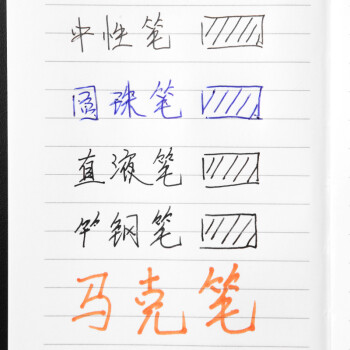 中性笔
圆珠笔
直液笔
竿钢笔
马克笔